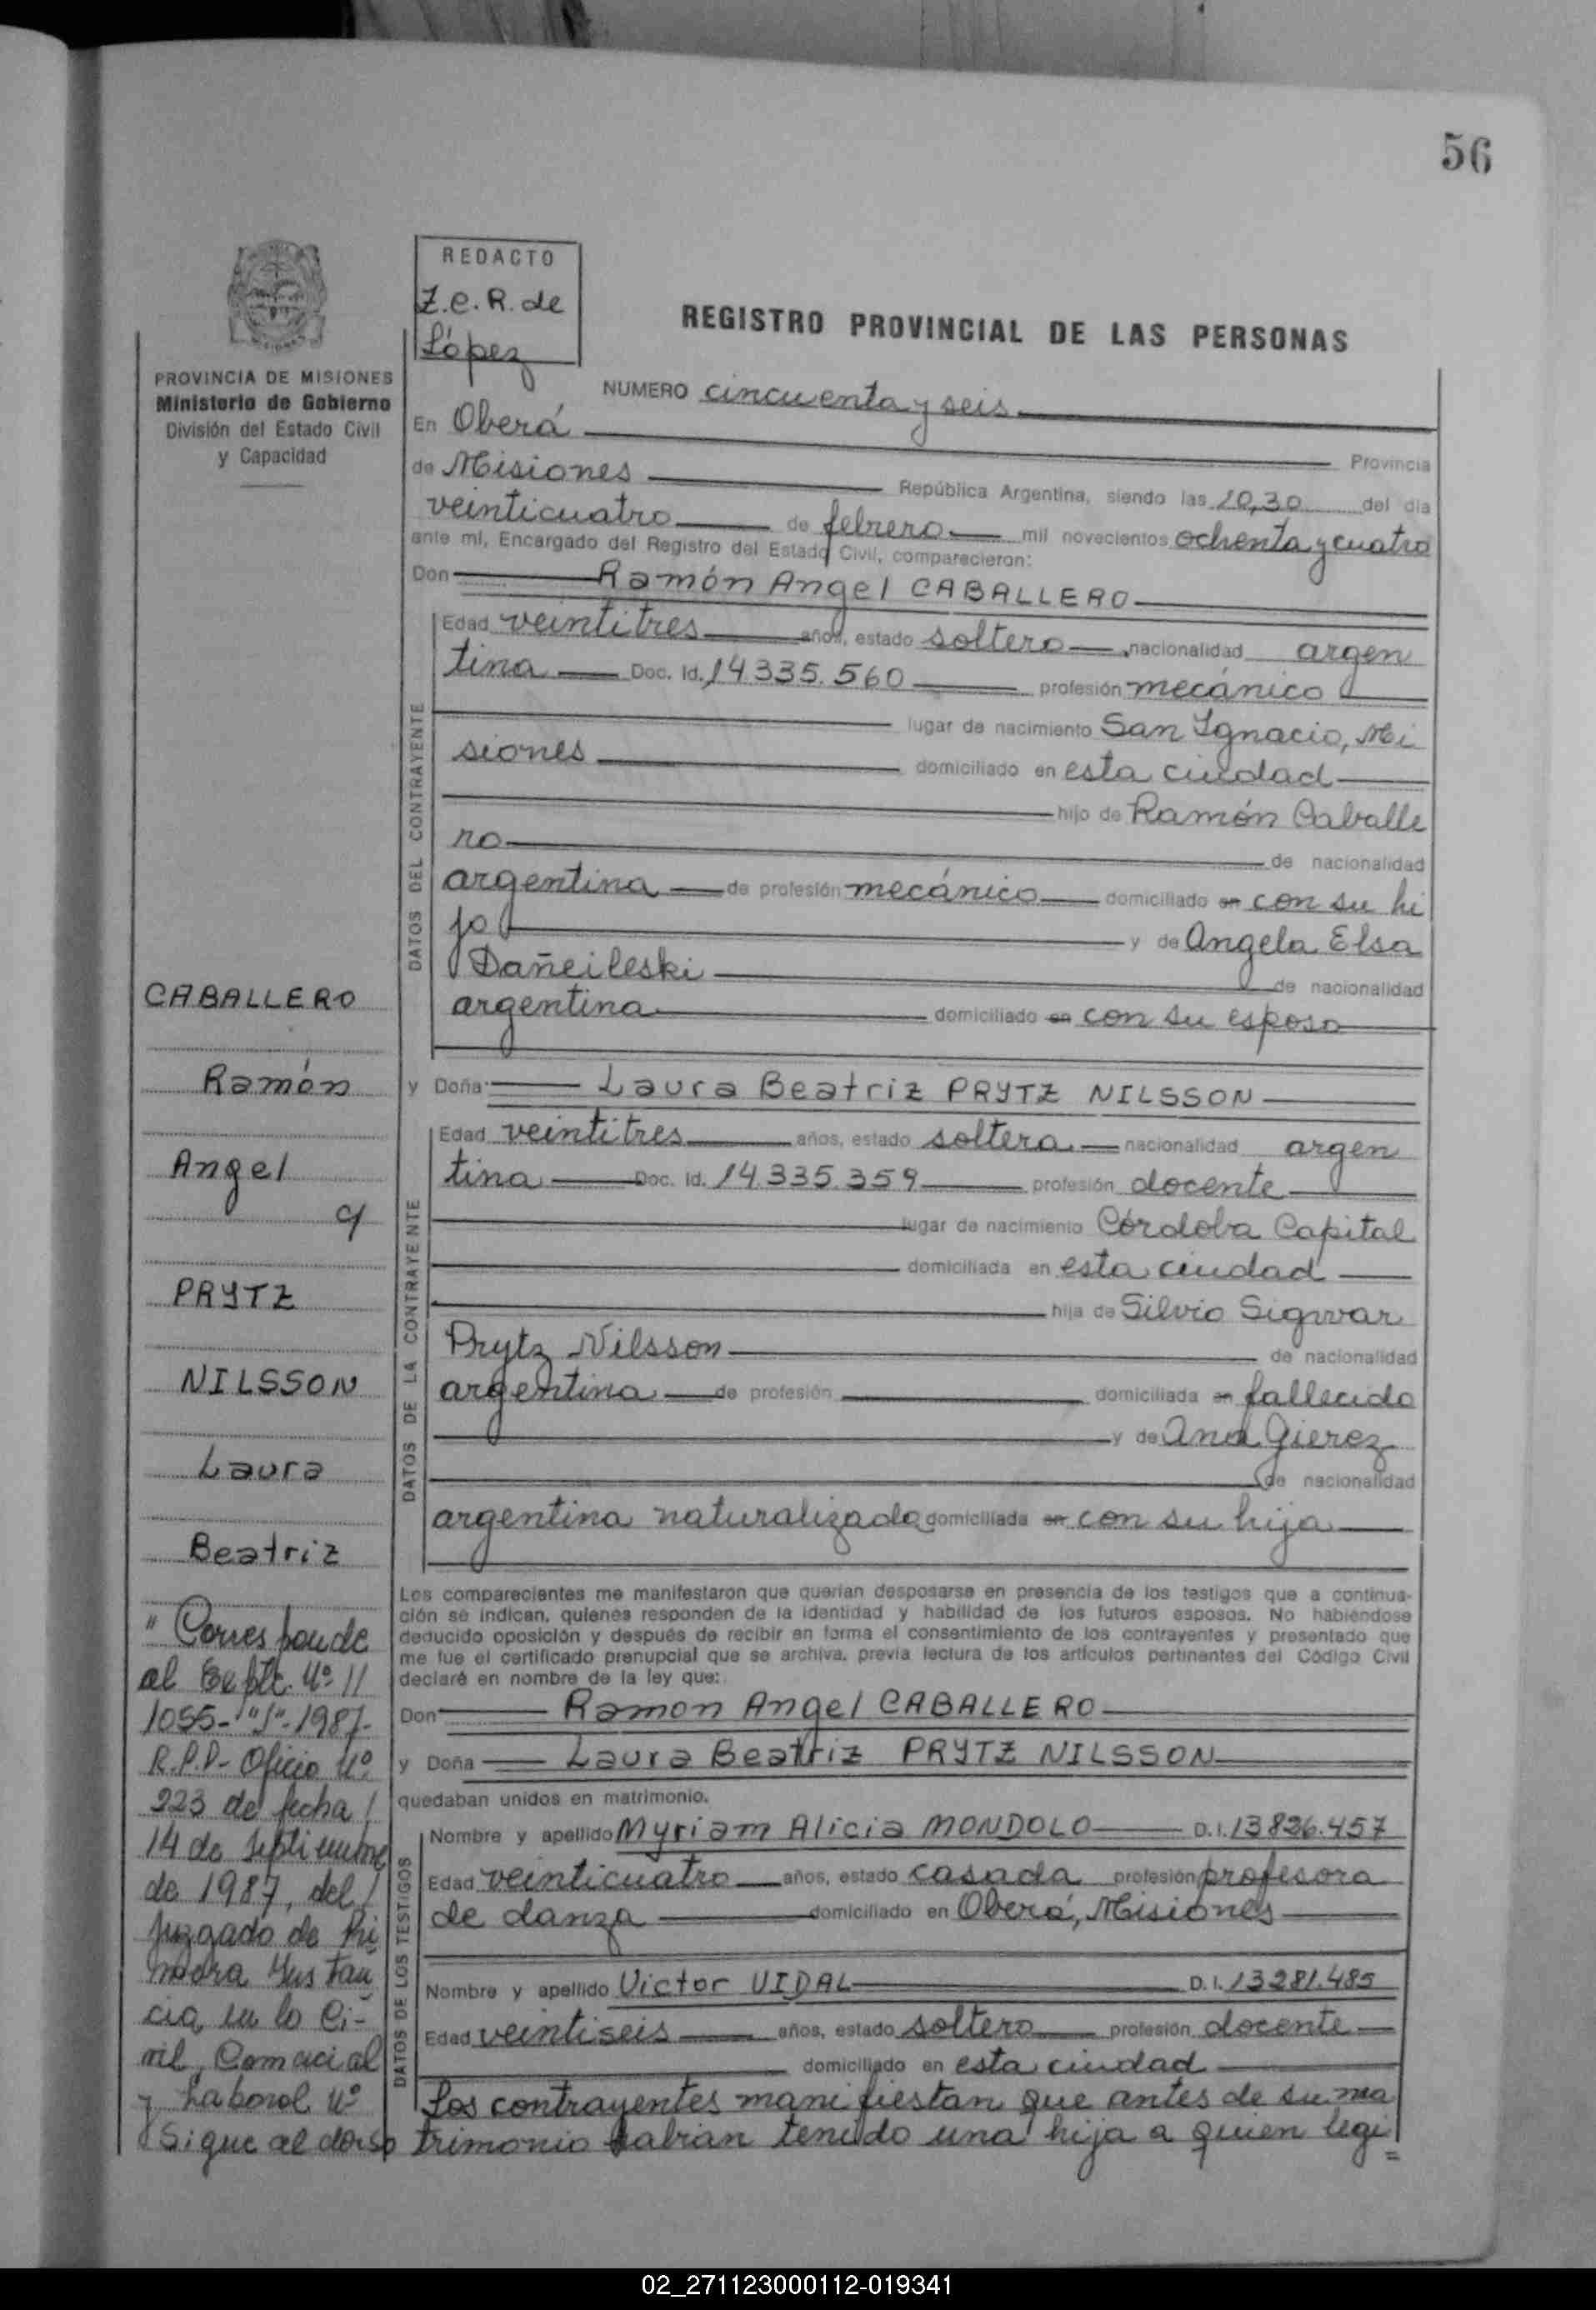 56
REDACTO
Z.e.R. de
López
REGISTRO PROVINCIAL DE LAS PERSONAS
PROVINCIA DE MISIONES
Ministerio de Gobierno
División del Estado Civil
y Capacidad
NUMERO cincuenta y seis
En Oberá
Provincia
de Misiones República Argentina, siendo las 10,30 del día
veinticuatro de febrero mil novecientos ochenta y cuatro
ante mí, Encargado del Registro del Estado Civil, comparecieron:
Don Ramón Angel CABALLERO
DATOS DEL CONTRAYENTE
Edad veintitres años, estado soltero nacionalidad argen
tina Doc. Id. 14.335.560 profesión mecánico
lugar de nacimiento San Ignacio, Mi
siones domiciliado en esta ciudad
hijo de Ramón Caballe
ro de nacionalidad
argentina de profesión mecánico domiciliado en con su hi
jo y de Angela Elsa
Dañeileski de nacionalidad
argentina domiciliado en con su esposo
y Doña Laura Beatriz PRYTZ NILSSON
DATOS DE LA CONTRAYENTE
Edad veintitres años, estado soltera nacionalidad argen
tina Doc. Id. 14.335.359 profesión docente
lugar de nacimiento Córdoba Capital
domiciliada en esta ciudad
hija de Silvio Sigwar
Prytz Nilsson de nacionalidad
argentina de profesión domiciliada en fallecido
y de Ana Gierez
de nacionalidad
argentina naturalizada domiciliada en con su hija
Los comparecientes me manifestaron que querían desposarse en presencia de los testigos que a continua-
ción se indican, quienes responden de la identidad y habilidad de los futuros esposos. No habiéndose
deducido oposición y después de recibir en forma el consentimiento de los contrayentes y presentado que
me fue el certificado prenupcial que se archiva, previa lectura de los artículos pertinentes del Código Civil
declaré en nombre de la ley que:
Don Ramon Angel CABALLERO
y Doña Laura Beatriz PRYTZ NILSSON
quedaban unidos en matrimonio.
DATOS DE LOS TESTIGOS
Nombre y apellido Myriam Alicia MONDOLO D.I. 13826.457
Edad veinticuatro años, estado casada profesión profesora
de danza domiciliado en Oberá, Misiones
Nombre y apellido Victor VIDAL D.I. 13281.485
Edad veintiseis años, estado soltero profesión docente
domiciliado en esta ciudad
Los contrayentes manifiestan que antes de su ma
trimonio habian tenido una hija a quien legi=
CABALLERO
Ramón
Angel
c/
PRYTZ
NILSSON
Laura
Beatriz
"Corresponde
al Expte. Nº //
1055-"J"-1987-
R.P.P- Oficio Nº
223 de fecha /
14 de septiembre
de 1987, del /
Juzgado de Pri
mera Instan
cia en lo Ci-
vil, Comecial
y Laboral Nº
Sigue al dorso
02_271123000112-019341